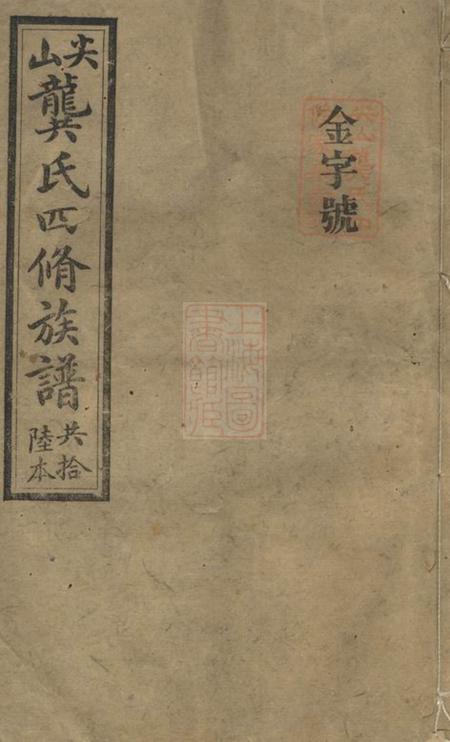 金字號
上海圖
書館藏
尖山龔氏四脩族譜
共拾
陸本